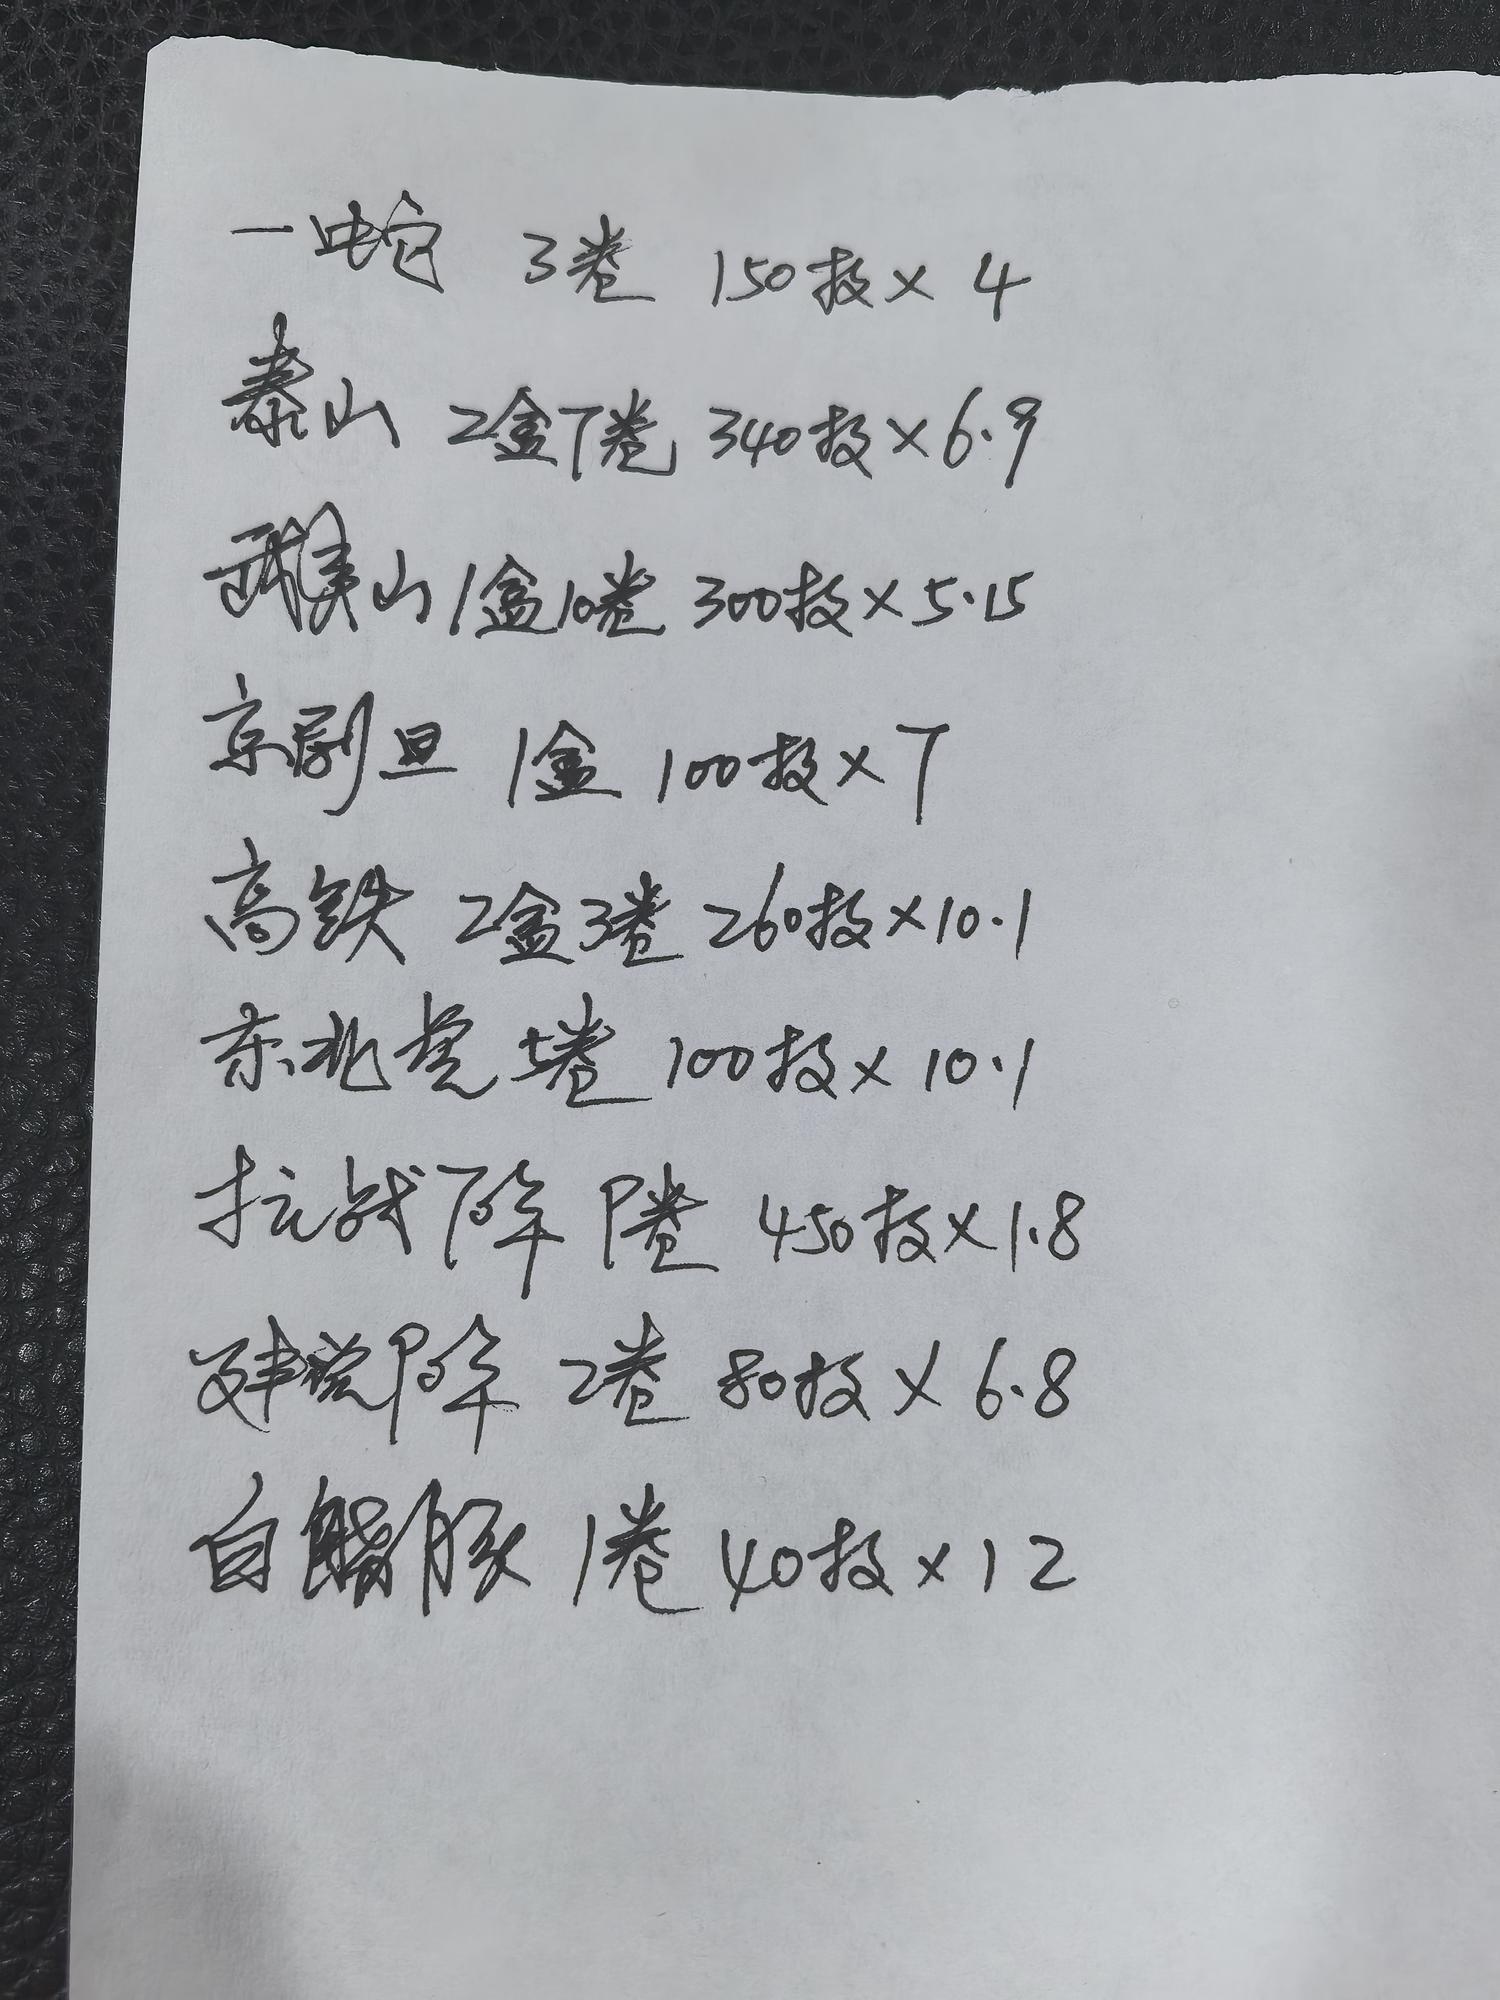 一蛇 3卷 150枚×4
泰山 2盒7卷 340枚×6.9
武夷山1盒10卷 300枚×5.15
京剧旦 1盒 100枚×7
高铁 2盒3卷 260枚×10.1
东北虎 5卷 100枚×10.1
抗战降 9卷 450枚×1.8
建党降 2卷 80枚×6.8
白鳍豚 1卷 40枚×12